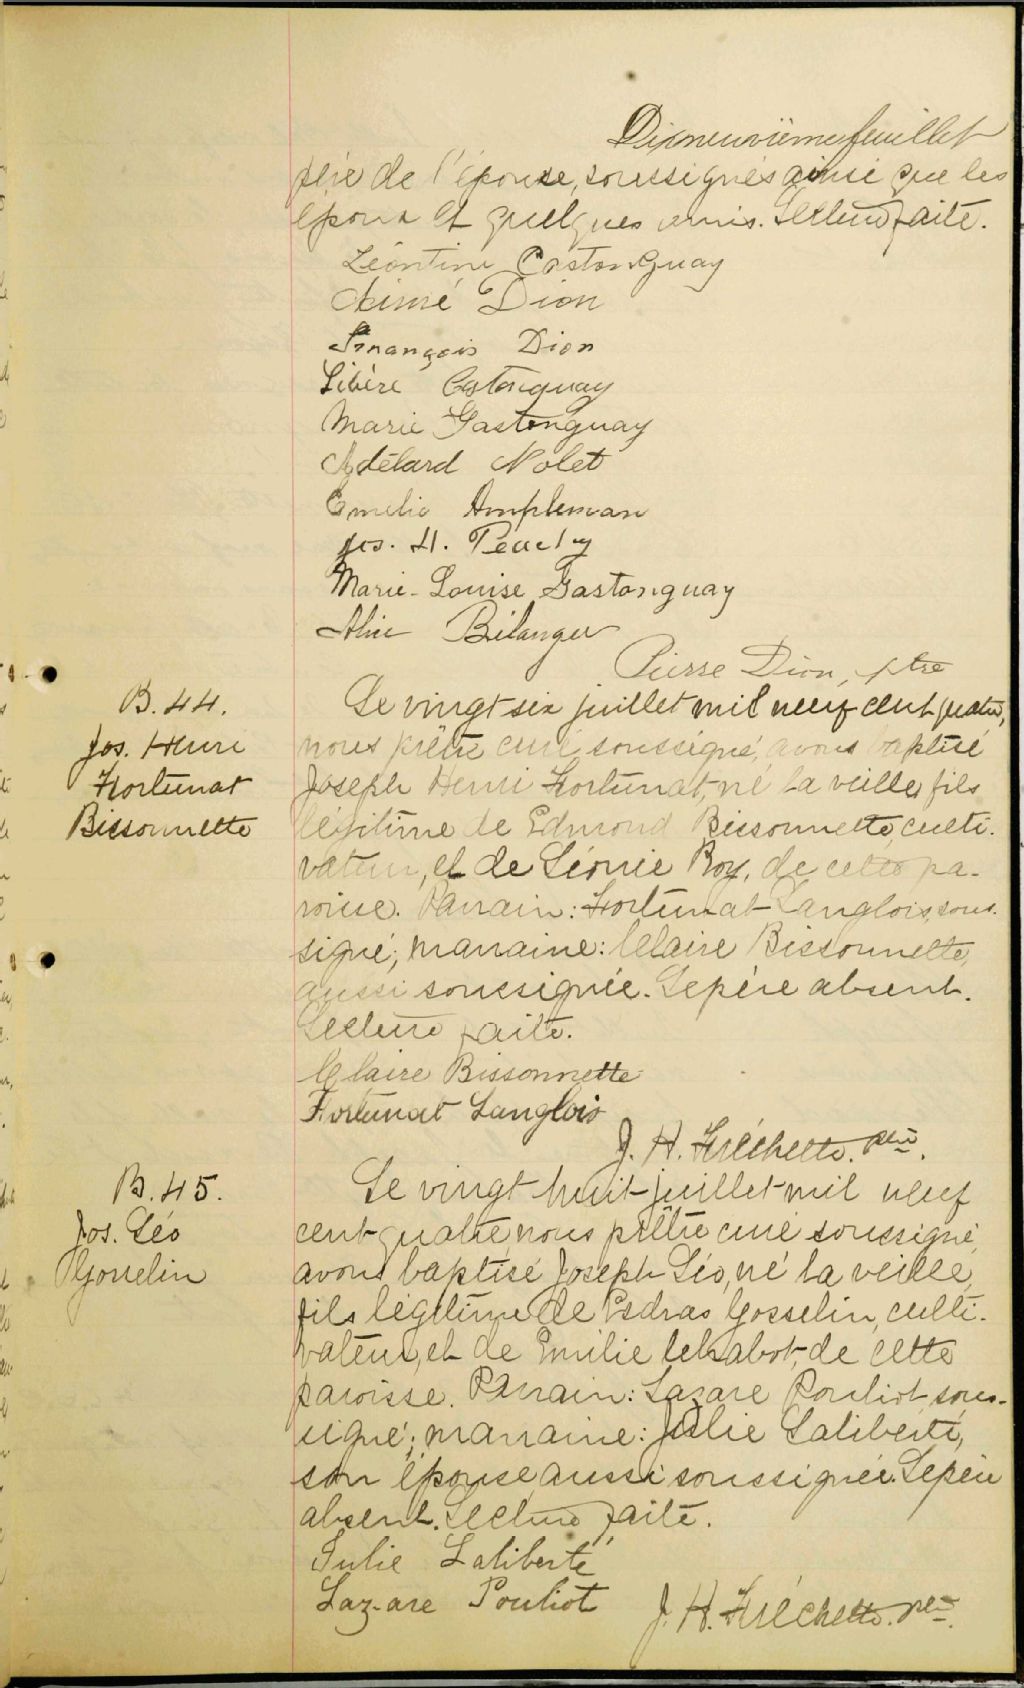 Dixneuvième feuillet
père de l'épouse, soussignés ainsi que les
époux et quelques amis. Lecture faite.
Léontine Castonguay
Aimé Dion
François Dion
Libère Castonguay
Marie Gastonguay
Adélard Nolet
Emélie Ampleman
Jos. H. Peuchy
Marie-Louise Gastonguay
Aline Bélanger
Pierre Dion, ptre
B. 44.
Jos. Henri
Fortunat
Bissonnette
Le vingt six juillet mil neuf cent quatre,
nous prêtre curé soussigné, avons baptisé
Joseph Henri Fortunat, né la veille, fils
légitime de Edmond Bissonnette, culti-
vateur, et de Léonie Roy, de cette pa-
roisse. Parrain: Fortunat Langlois, sous-
signé; marraine: Claire Bissonnette,
aussi soussignée. Le père absent.
Lecture faite.
Claire Bissonnette
Fortunat Langlois
J. H. Fréchette. ptre.
B. 45.
Jos. Léo
Gosselin
Le vingt huit juillet mil neuf
cent quatre nous prêtre curé soussigné,
avons baptisé Joseph Léo, né la veille,
fils légitime de Esdras Gosselin, culti-
vateur, et de Emilie Chabot, de cette
paroisse. Parrain: Lazare Pouliot sous-
signé; marraine: Julie Laliberté,
son épouse aussi soussignée. Le père
absent. Lecture faite.
Julie Laliberté
Lazare Pouliot
J. H. Fréchette. ptre.